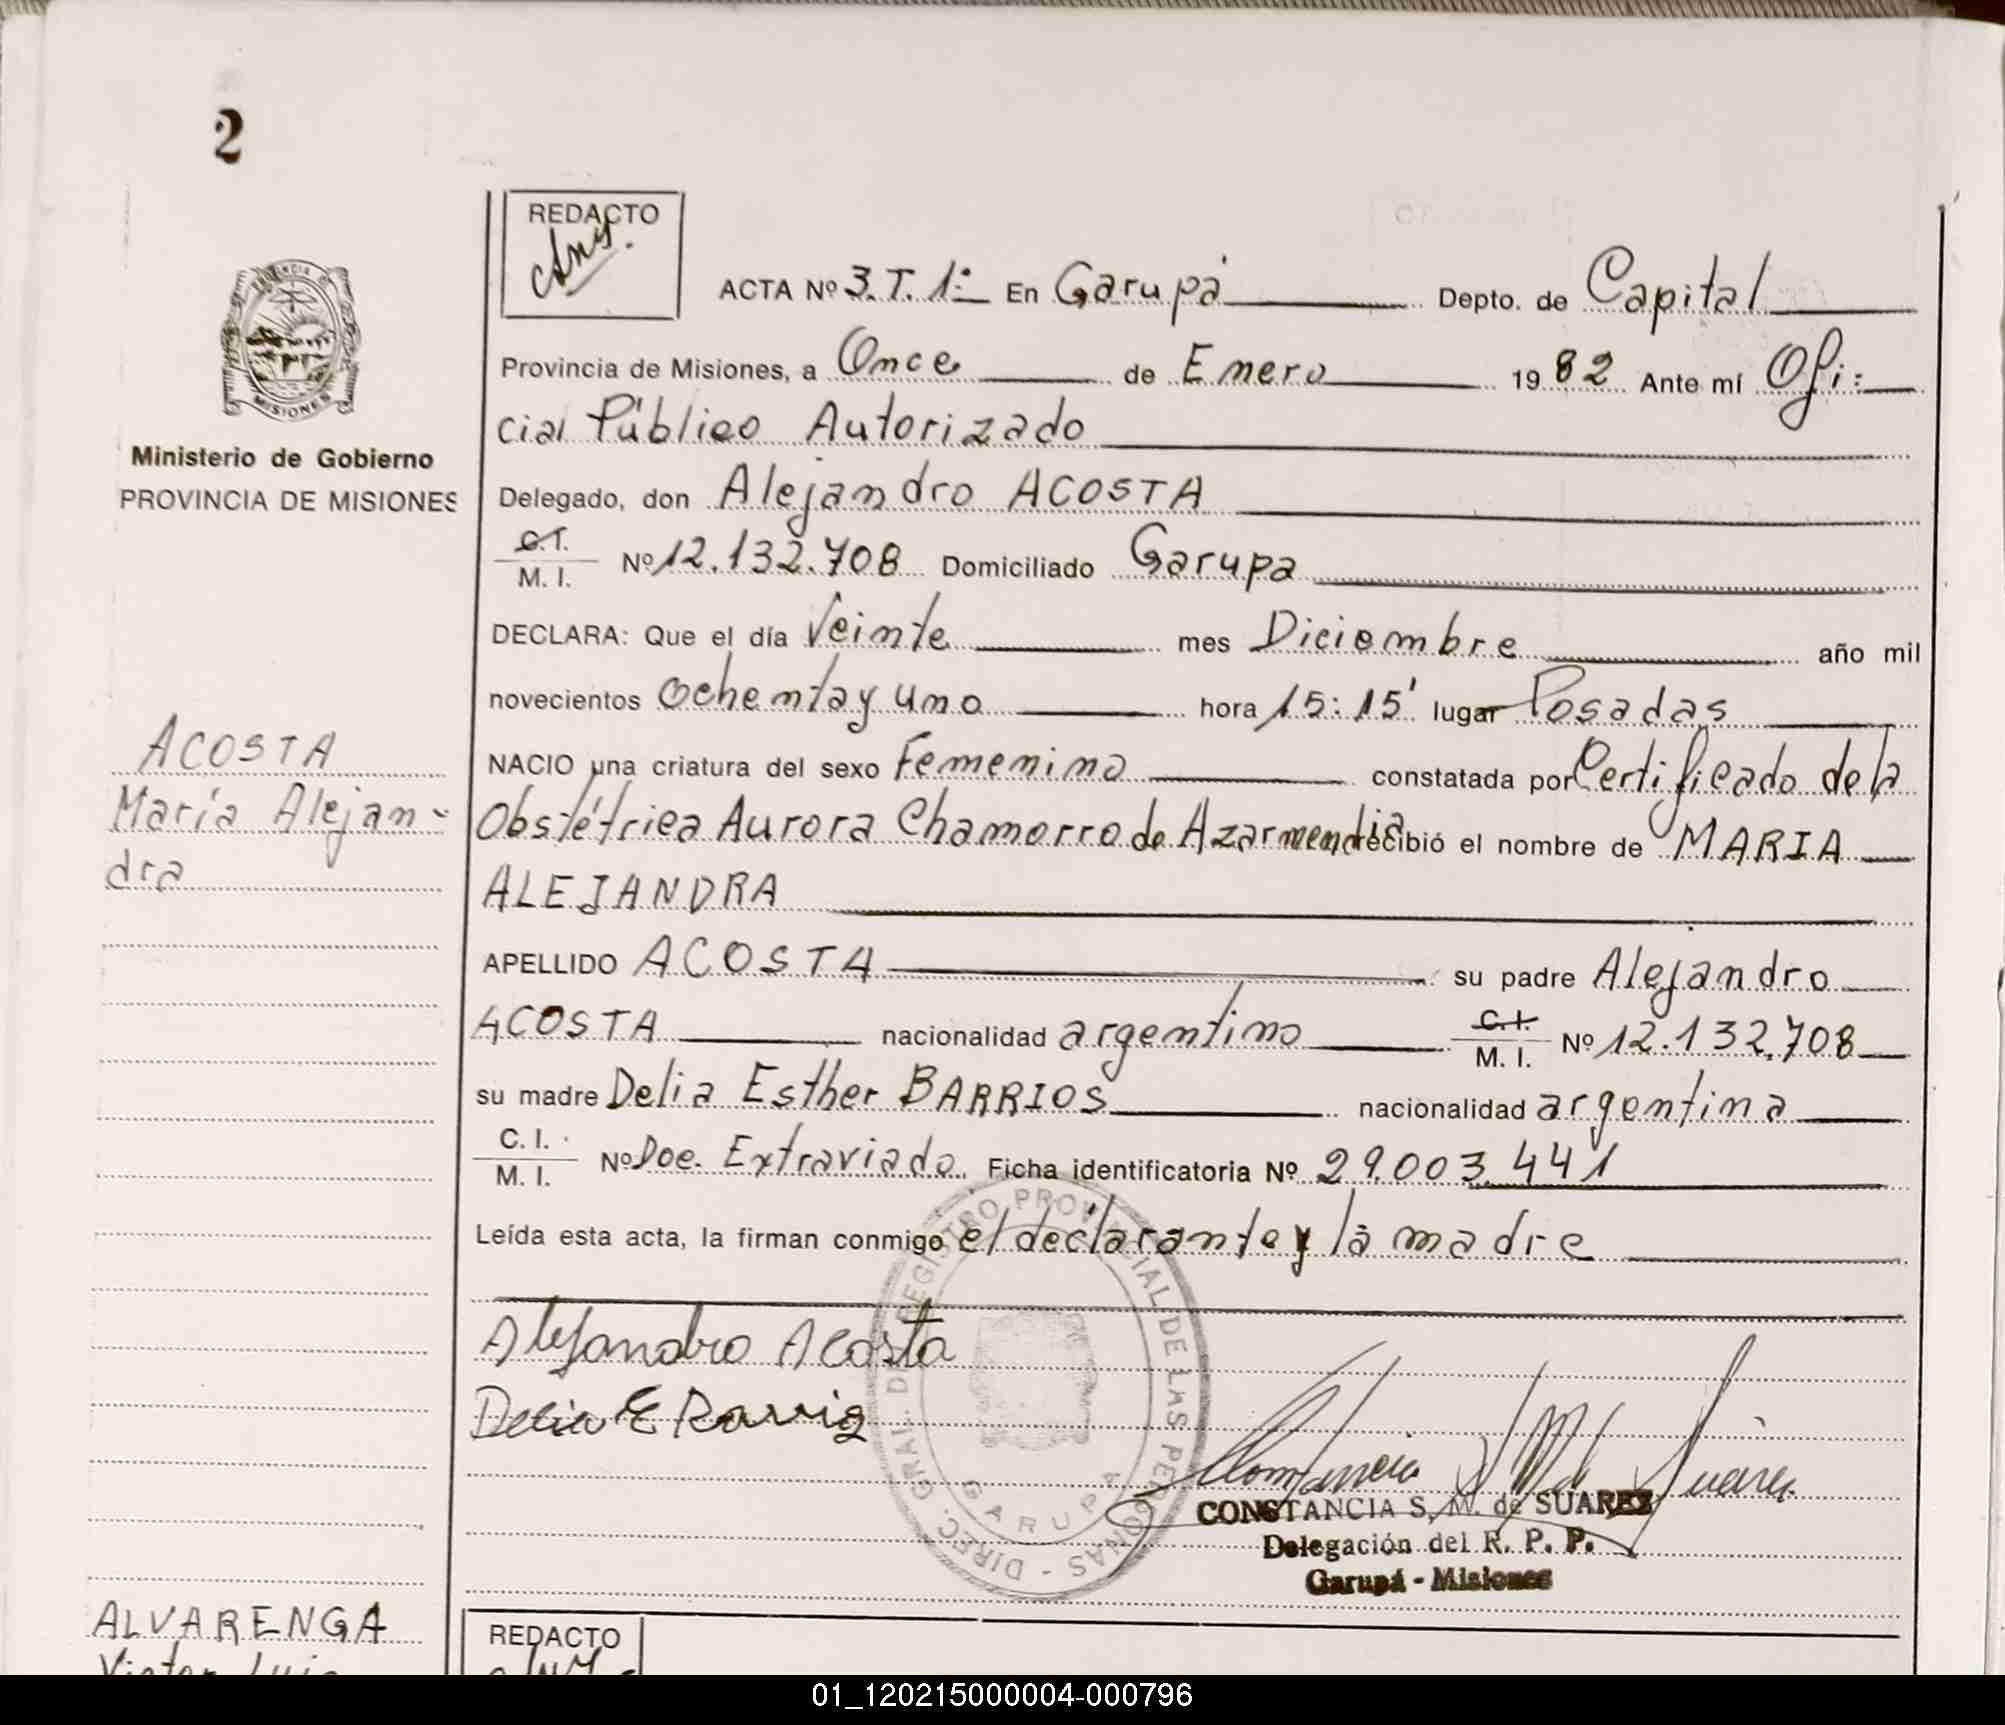 2
REDACTO
ACTA Nº 3. T. 1º En Garupá Depto. de Capital
Provincia de Misiones, a Once de Enero 1982 Ante mí Ofi:
cial Público Autorizado
Delegado, don Alejandro ACOSTA
C.I. M. I. Nº 12.132.708 Domiciliado Garupa
DECLARA: Que el día Veinte mes Diciembre año mil
novecientos Ochenta y uno hora 15:15' lugar Posadas
NACIO una criatura del sexo Femenino constatada por Certificado de la
Obstétrica Aurora Chamorro de Azarmendia recibió el nombre de MARIA
ALEJANDRA
APELLIDO ACOSTA su padre Alejandro
ACOSTA nacionalidad argentino C.I. M. I. Nº 12.132.708
su madre Delia Esther BARRIOS nacionalidad argentina
C. I. M. I. Nº Doc. Extraviado Ficha identificatoria Nº 29.003.441
Leída esta acta, la firman conmigo el declarante y la madre
Alejandro Acosta
Delia E
CONSTANCIA S. M. de SUAREZ
Delegación del R. P. P.
Garupá - Misiones
DIREC. GRAL. DEL REGISTRO PROVINCIAL DE LAS PERSONAS -
GARUPA
MISIONES
Ministerio de Gobierno
PROVINCIA DE MISIONES
ACOSTA
María Alejan-
dra
ALVARENGA
Victor Luis
REDACTO
01_120215000004-000796